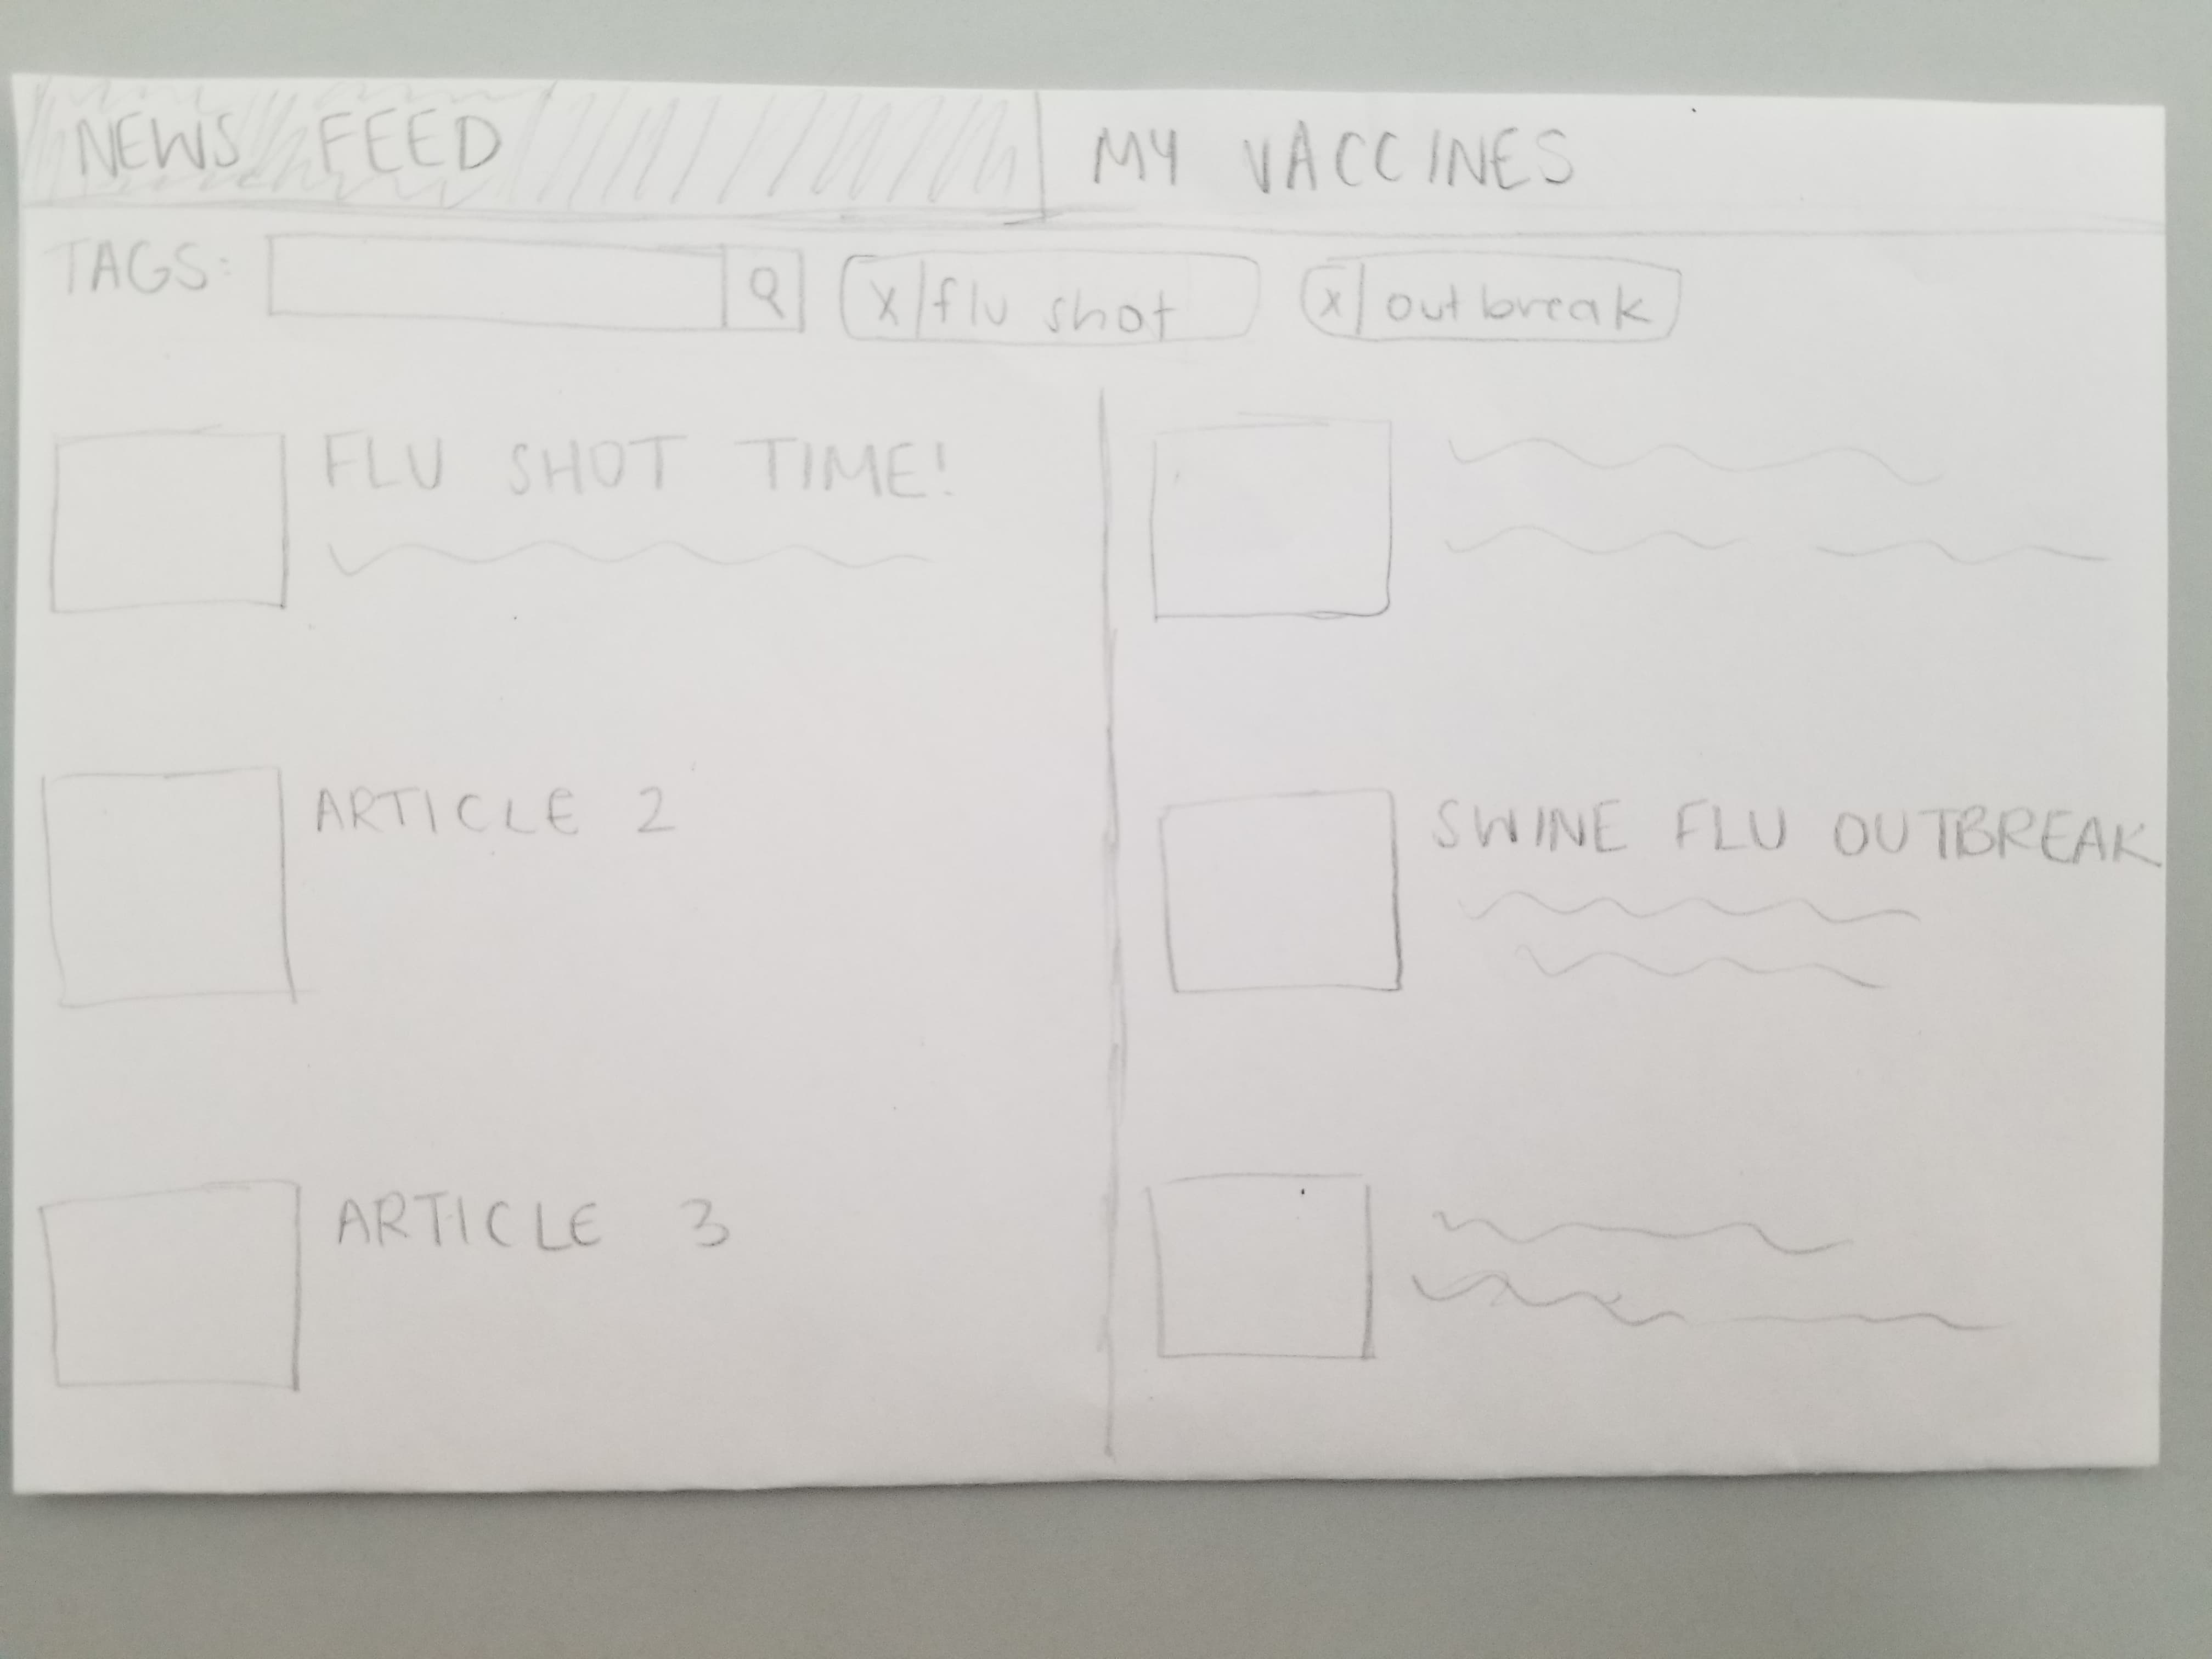 NEWS FEED
MY VACCINES
TAGS:
x flu shot
x outbreak
FLU SHOT TIME!
ARTICLE 2
SWINE FLU OUTBREAK
ARTICLE 3